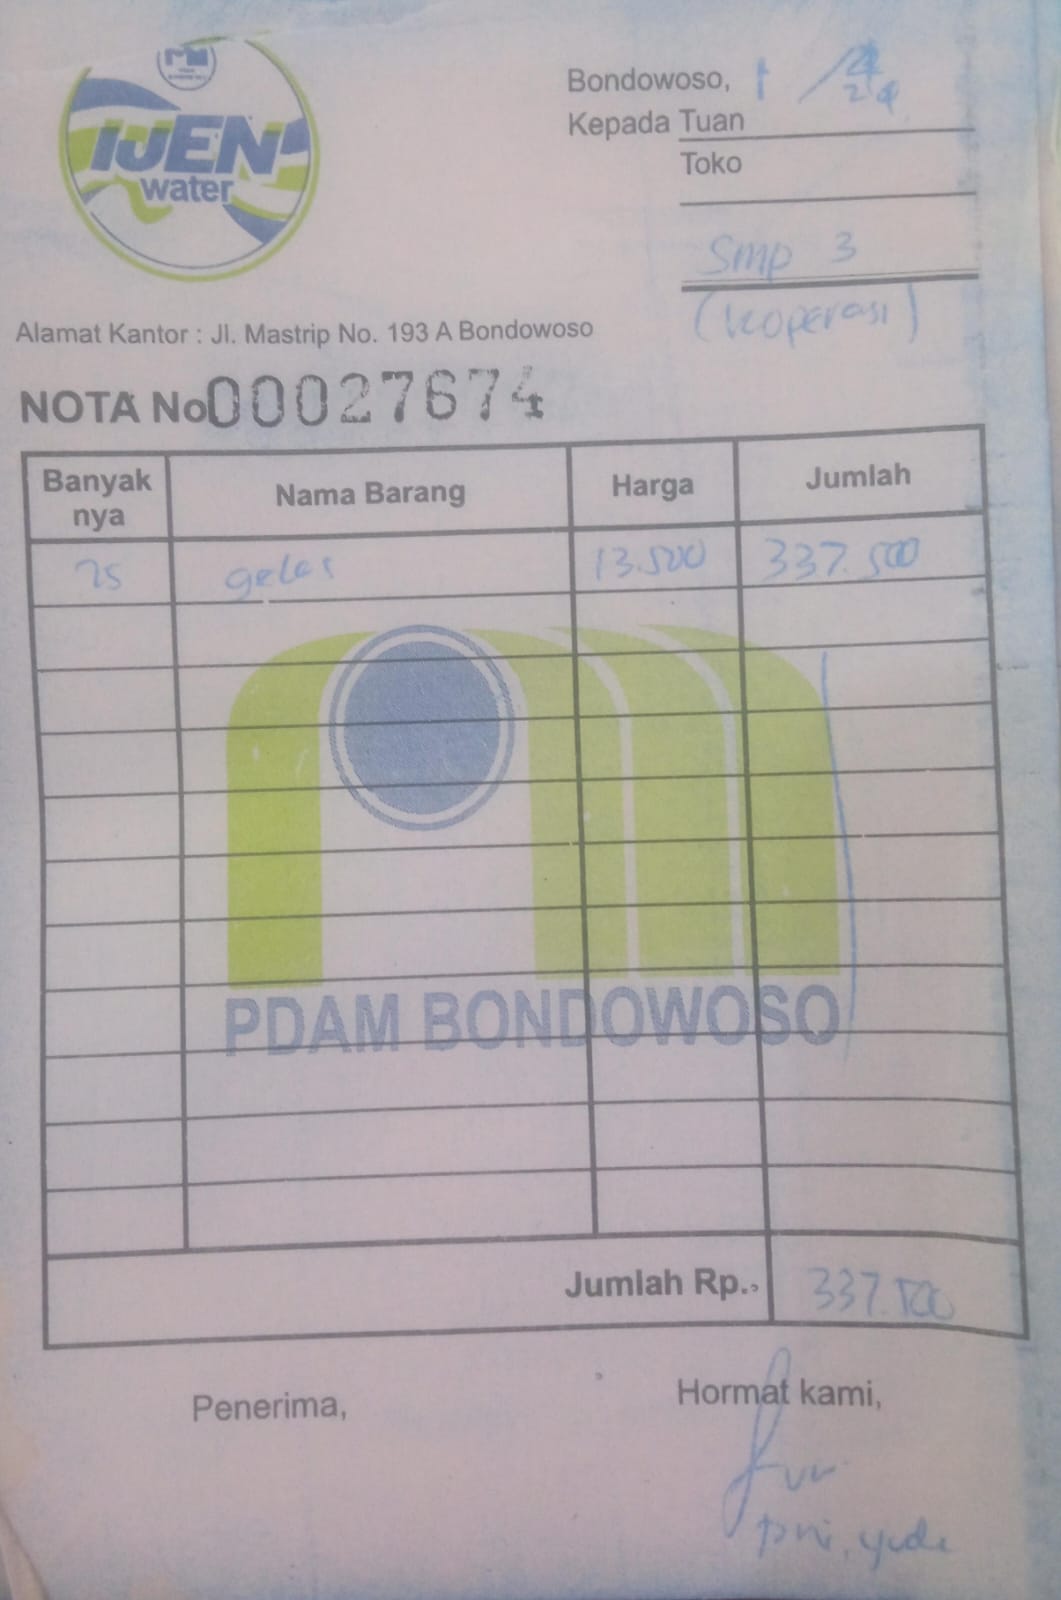 IJEN
water
Bondowoso, 1 / 4
24
Kepada Tuan
Toko
Smp 3
(koperasi)
Alamat Kantor : Jl. Mastrip No. 193 A Bondowoso
NOTA No 00027674
Banyak nya Nama Barang Harga Jumlah
25 gelas 13.500 337.500
PDAM BONDOWOSO
Jumlah Rp., 337.500
Penerima, Hormat kami,